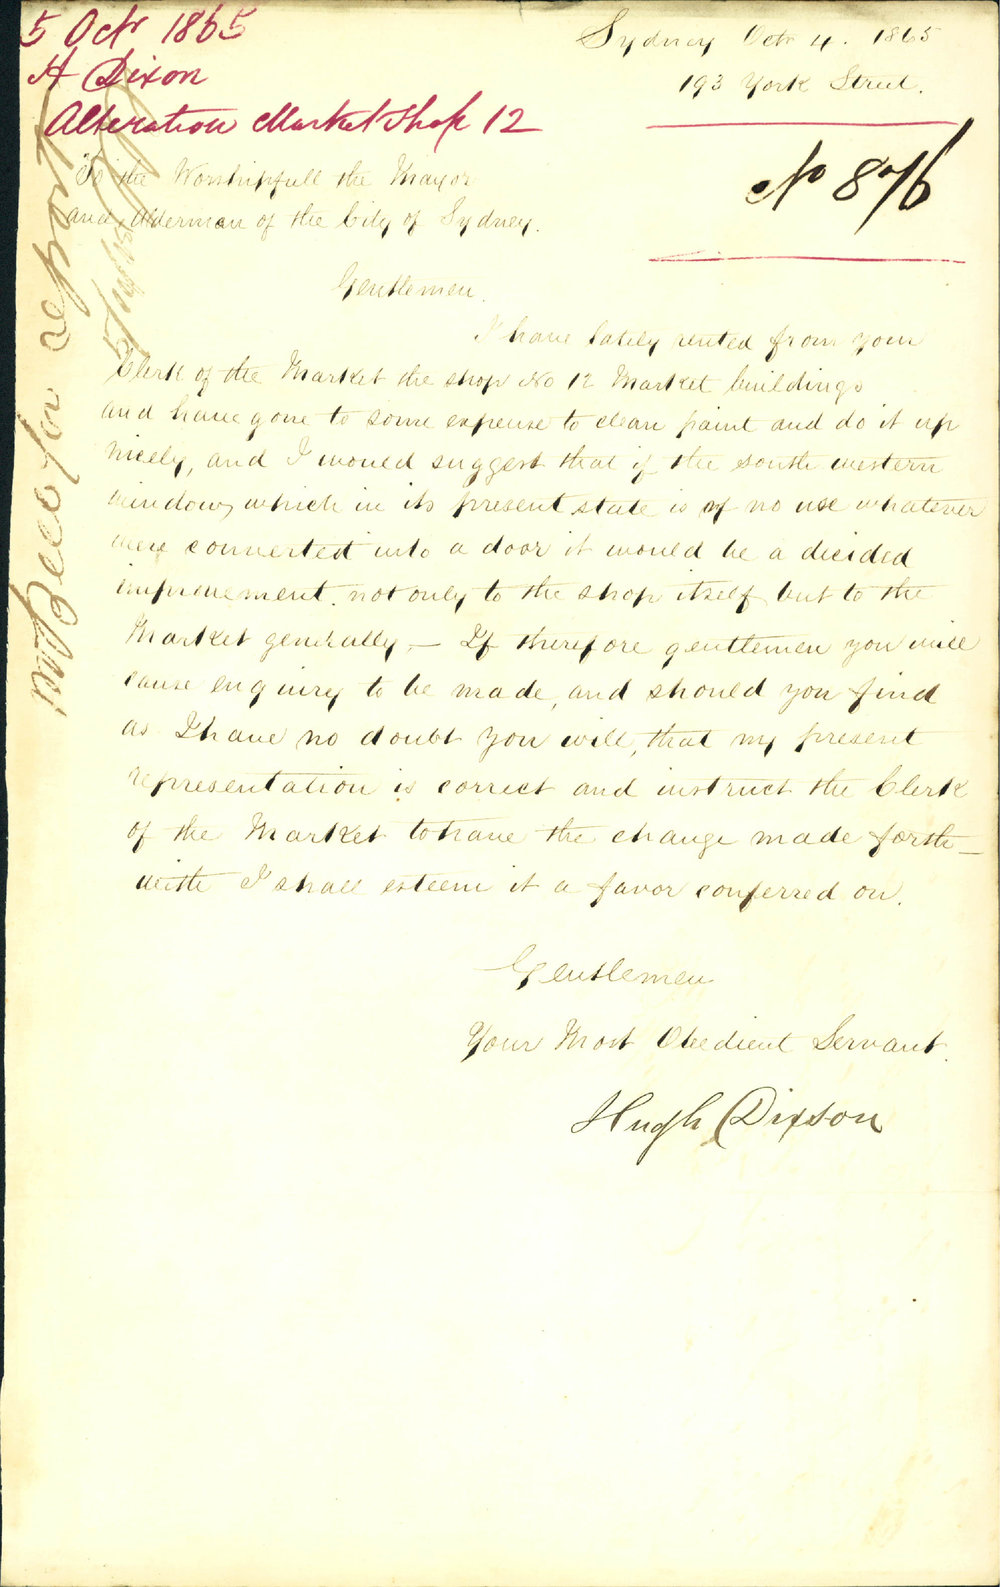 5 Octr 1865
H Dixon
Alteration Market Shop 12
Sydney Octr 4. 1865
193 York Street.
No 876
To the Worshipfull the Mayor
and Alderman of the City of Sydney.
Gentlemen.
I have lately rented from your
Clerk of the Market the shop No 12 Market buildings
and have gone to some expense to clean paint and do it up
nicely, and I would suggest that if the south western
window, which in its present state is of no use whatever
were converted into a door it would be a decided
improvement. not only to the shop itself but to the
Market generally – If therefore gentlemen you will
cause enquiry to be made, and should you find
as I have no doubt you will, that my present
representation is correct and instruct the Clerk
of the Market to have the change made forth-
with I shall esteem it a favor conferred on.
Gentlemen
Your Most Obedient Servant.
Hugh Dixson
Mr Bell for report